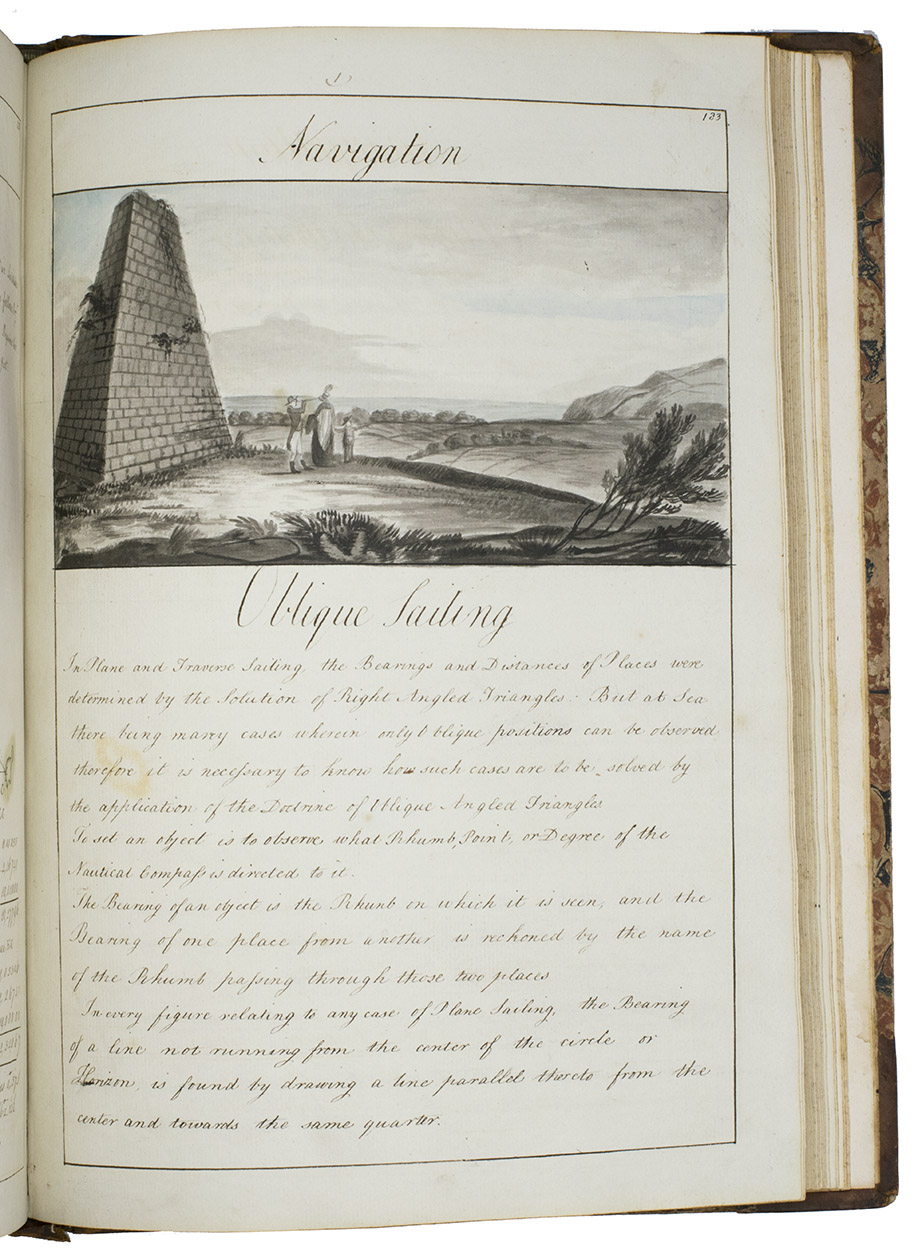 (1)
123
Navigation
Oblique Sailing
In Plane and Traverse Sailing, the Bearings and Distances of Places were
determined by the Solution of Right Angled Triangles: But at Sea
there being many cases wherein only Oblique positions can be observed
therefore it is necessary to know how such cases are to be solved by
the application of the Doctrine of Oblique Angled Triangles
To set an object is to observe what Rhumb, Point, or Degree of the
Nautical Compass is directed to it.
The Bearing of an object is the Rhumb on which it is seen, and the
Bearing of one place from another is reckoned by the name
of the Rhumb passing through those two places
In every figure relating to any case of Plane Sailing, the Bearing
of a line not running from the center of the circle or
Horizon, is found by drawing a line parallel thereto from the
center and towards the same quarter.